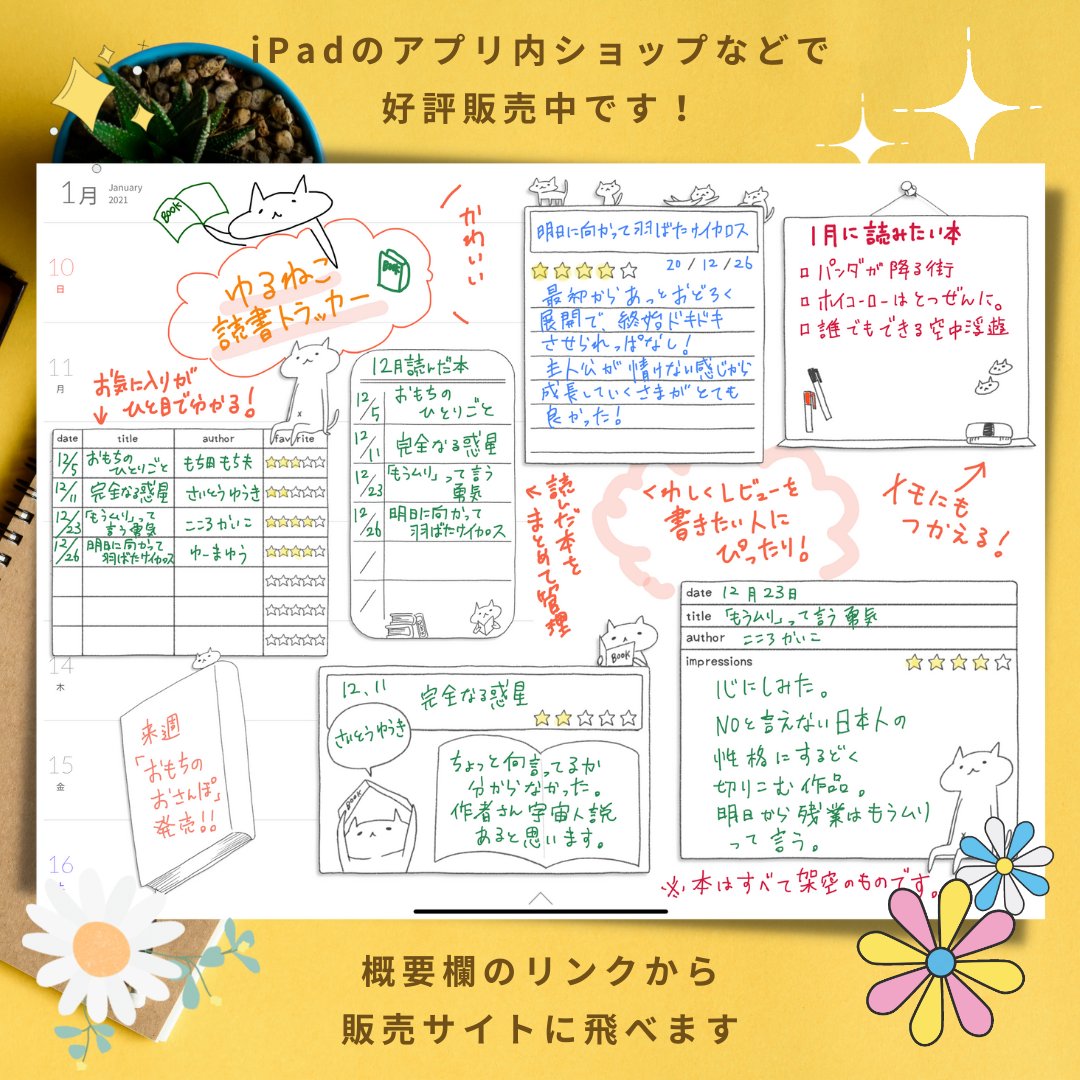 iPadのアプリ内ショップなどで
好評販売中です！
1月 January
2021
BOOK
ゆるねこ
読書トラッカー
BOOK
かわいい
10
日
11
月
14
木
15
金
16
お気に入りが
ひと目で分かる！
date title author favorite
12/5 おもちの
ひとりごと もち田もち夫
12/11 完全なる惑星 さいとうゆうき
12/23 「もうムリ」って
言う勇気 こころかいこ
12/26 明日に向かって
羽ばたけイカロス ゆーまゆう
12月読んだ本
12/5 おもちの
ひとりごと
12/11 完全なる惑星
12/23 「もうムリ」って言う
勇気
12/26 明日に向かって
羽ばたけイカロス
読んだ本を
まとめて管理
明日に向かって羽ばたけイカロス
20/12/26
最初からあっとおどろく
展開で、終始ドキドキ
させられっぱなし！
主人公が情けない感じから
成長していくさまがとても
良かった！
1月に読みたい本
パンダが降る街
ホイコーローはとつぜんに。
誰でもできる空中浮遊
メモにも
つかえる！
くわしくレビューを
書きたい人に
ぴったり！
来週
「おもちの
おさんぽ」
発売!!
BOOK
12.11 完全なる惑星
さいとうゆうき
BOOK
ちょっと何言ってるか
分からなかった。
作者さん宇宙人説
あると思います。
date 12月23日
title 「もうムリ」って言う勇気
author こころかいこ
impressions
心にしみた。
NOと言えない日本人の
性格にするどく
切りこむ作品。
明日から残業はもうムリ
って言う。
※本はすべて架空のものです。
概要欄のリンクから
販売サイトに飛べます